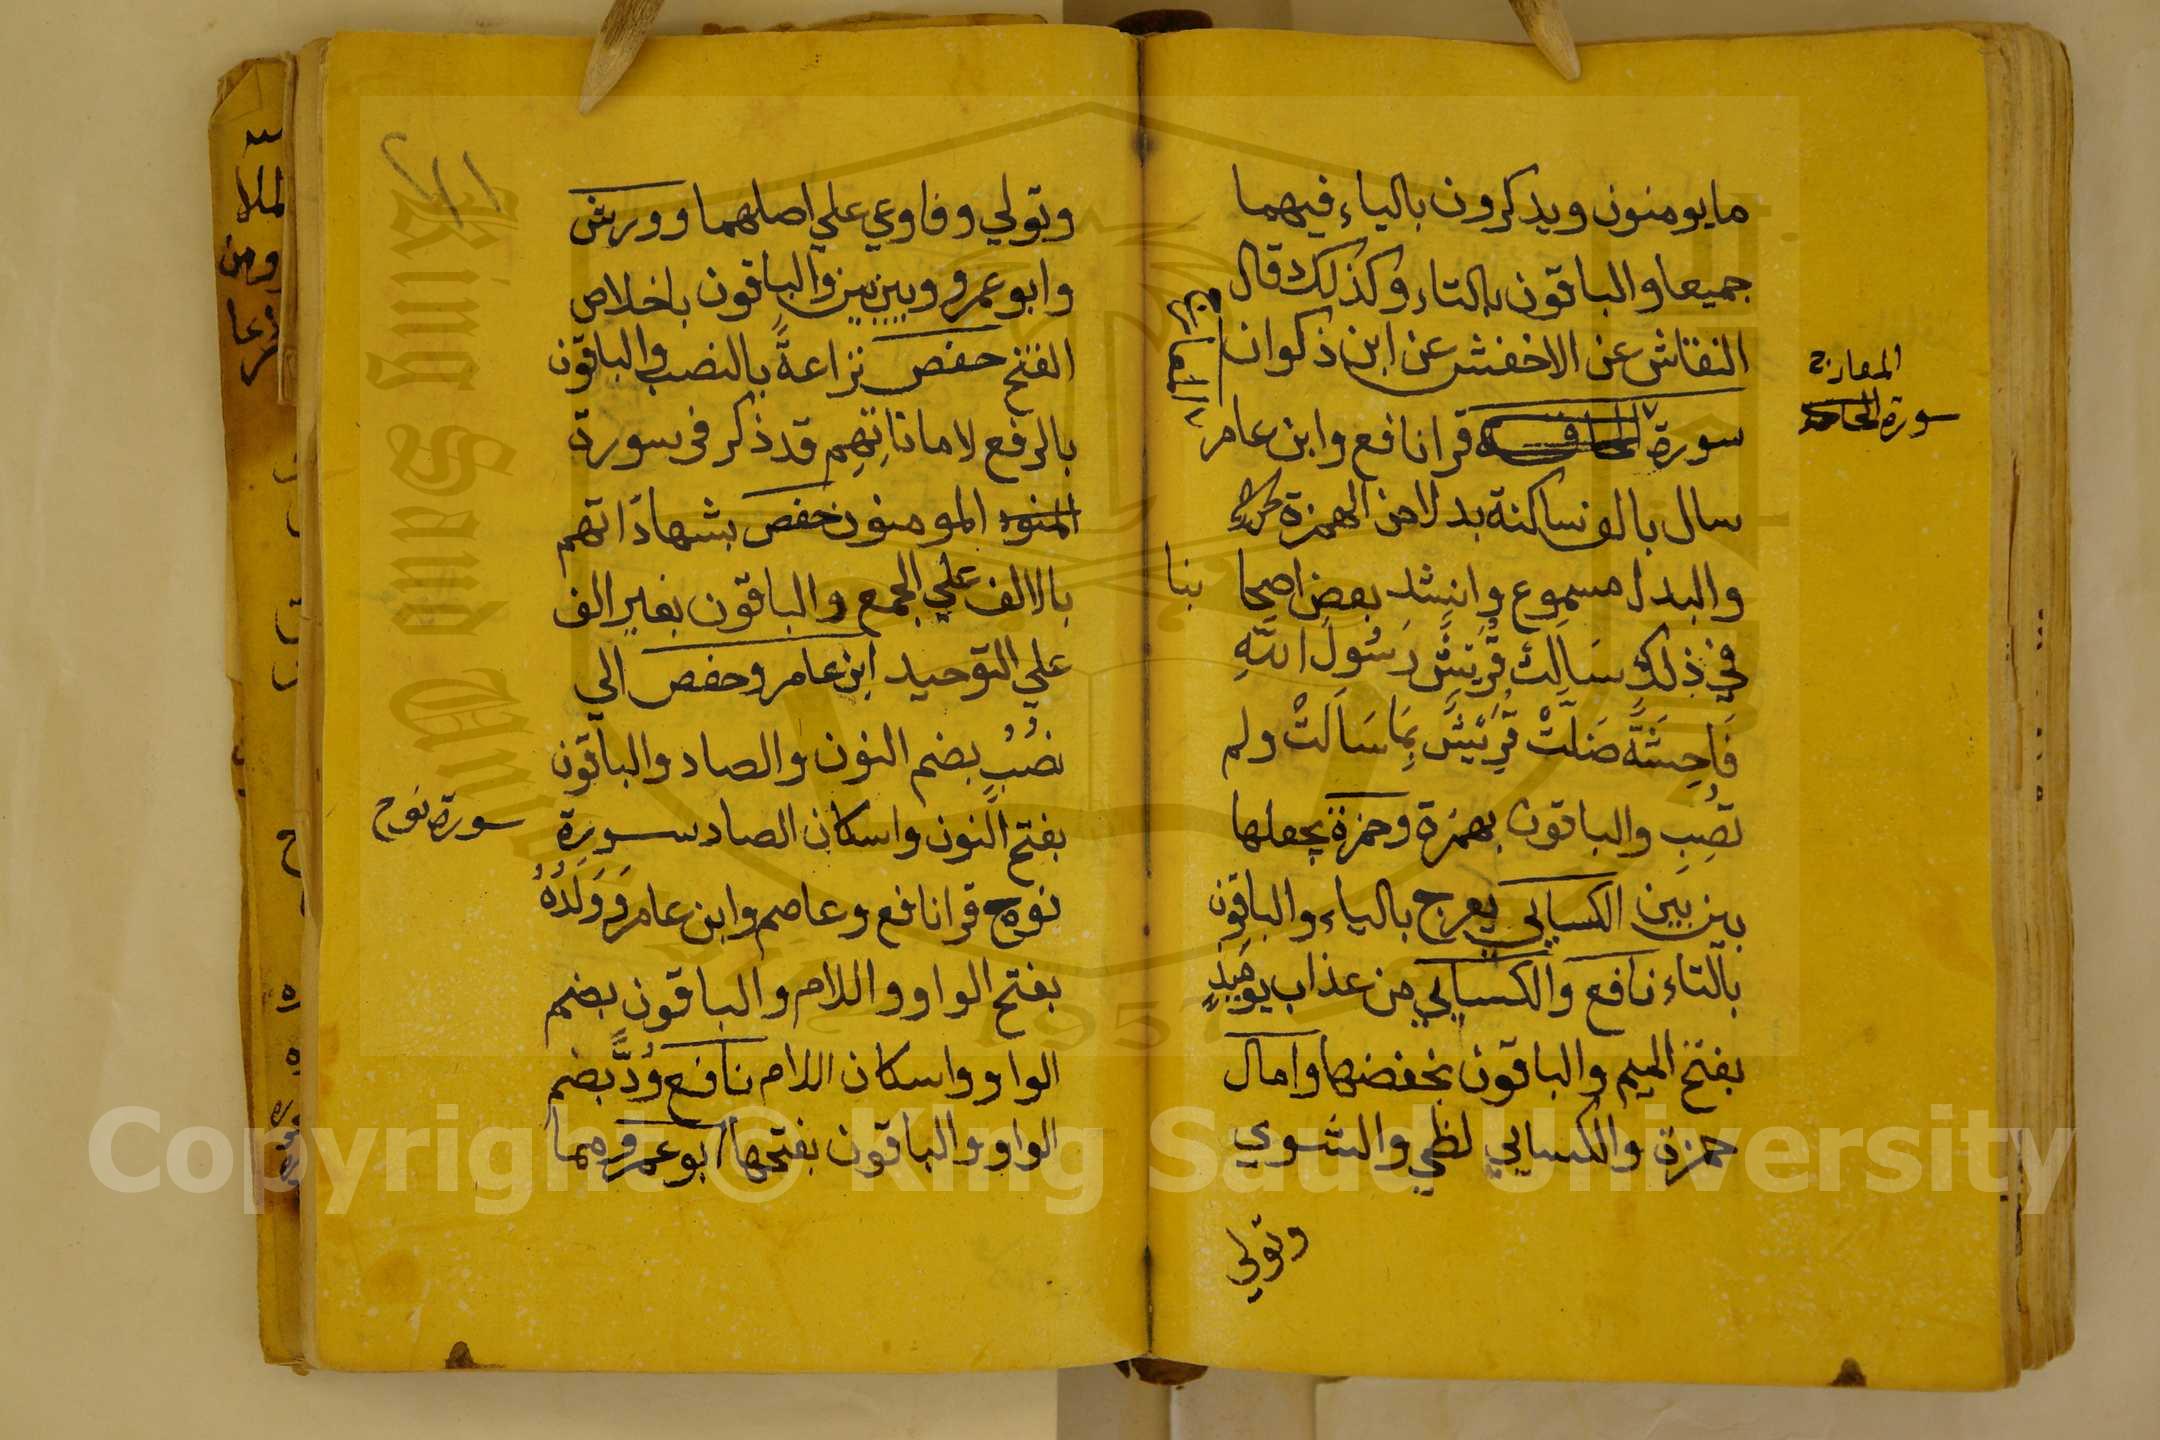 ما يومنون ويذكرون بالياء فيهما
جميعا والباقون بالتاء وكذلك قال
النقاش عن الاخفش عن ابن ذكوان
سورة قرا نافع وابن عامر
سال بالف ساكنة بدلا من الهمزة
والبدل مسموع وانشد بعض اصحا بنا
في ذلك سَالِت قُرَيش رَسُولَ اللّهِ
فَاحِشَةً ضَلَّتْ قُرَيْشٌ بِمَا سَالَتْ ولم
تُصِبِ والباقون بهمزة وحمزة يجعلها
بين بين الكسايي يعرج بالياء والباقون
بالتاء نافع والكسايي من عذاب يومَيِذٍ
بفتح الميم والباقون بخفضها وامال
حمزة والكسايي لظي والشوي
وتولي
المعارج
سورة
وتولي وفاوعي علي اصلهما وورش
وابو عمرو وبين بين والباقون باخلاص
الفتح حفص نزاعةً بالنصب والباقون
بالرفع لاماناتِهِم قد ذكر في سورة
المومنون حفص بشهاداتهم
بالالف علي الجمع والباقون بغير الف
علي التوحيد ابن عامر وحفص الي
نُصُبٍ بضم النون والصاد والباقون
بفتح النون واسكان الصاد سورة
نوح قرا نافع وعاصم وابن عامر وَوَلَدُهُ
بفتح الواو واللام والباقون بضم
الواو واسكان اللام نافع وُدًّا بضم
الواو والباقون بفتحها ابو عمرو مما
سورة نوح
King Saud University
1957
Copyright © King Saud University